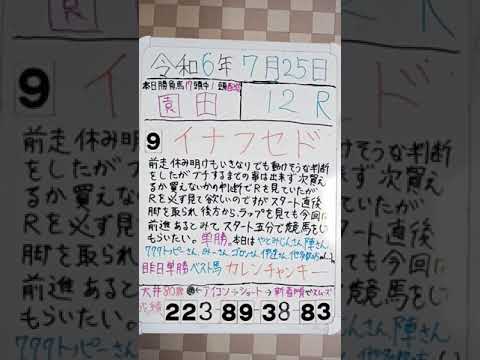 令和6年7月25日
本日勝負馬17頭中1頭配信
園田 12R
9 イナフセド
前走休み明けもいきなりでも動けそうな判断
をしたがブチするまでの事は出来ず次買え
るか買えないかの判断でRを見ていたが
Rを必ず見て欲しいのですがスタート直後
脚を取られ後方から、ラップを見ても今回は
前進あるとみてスタート五分で競馬をして
もらいたい。単勝 本日はやとみじんさん、陣さん
777トッピーさん、みーさん、ゴロンさん、伊達さん、
昨日単勝ベスト馬 カレンチャンキー
大井 ←アイコン→ショート→新着順でスムーズ
成績 223 89 38 83